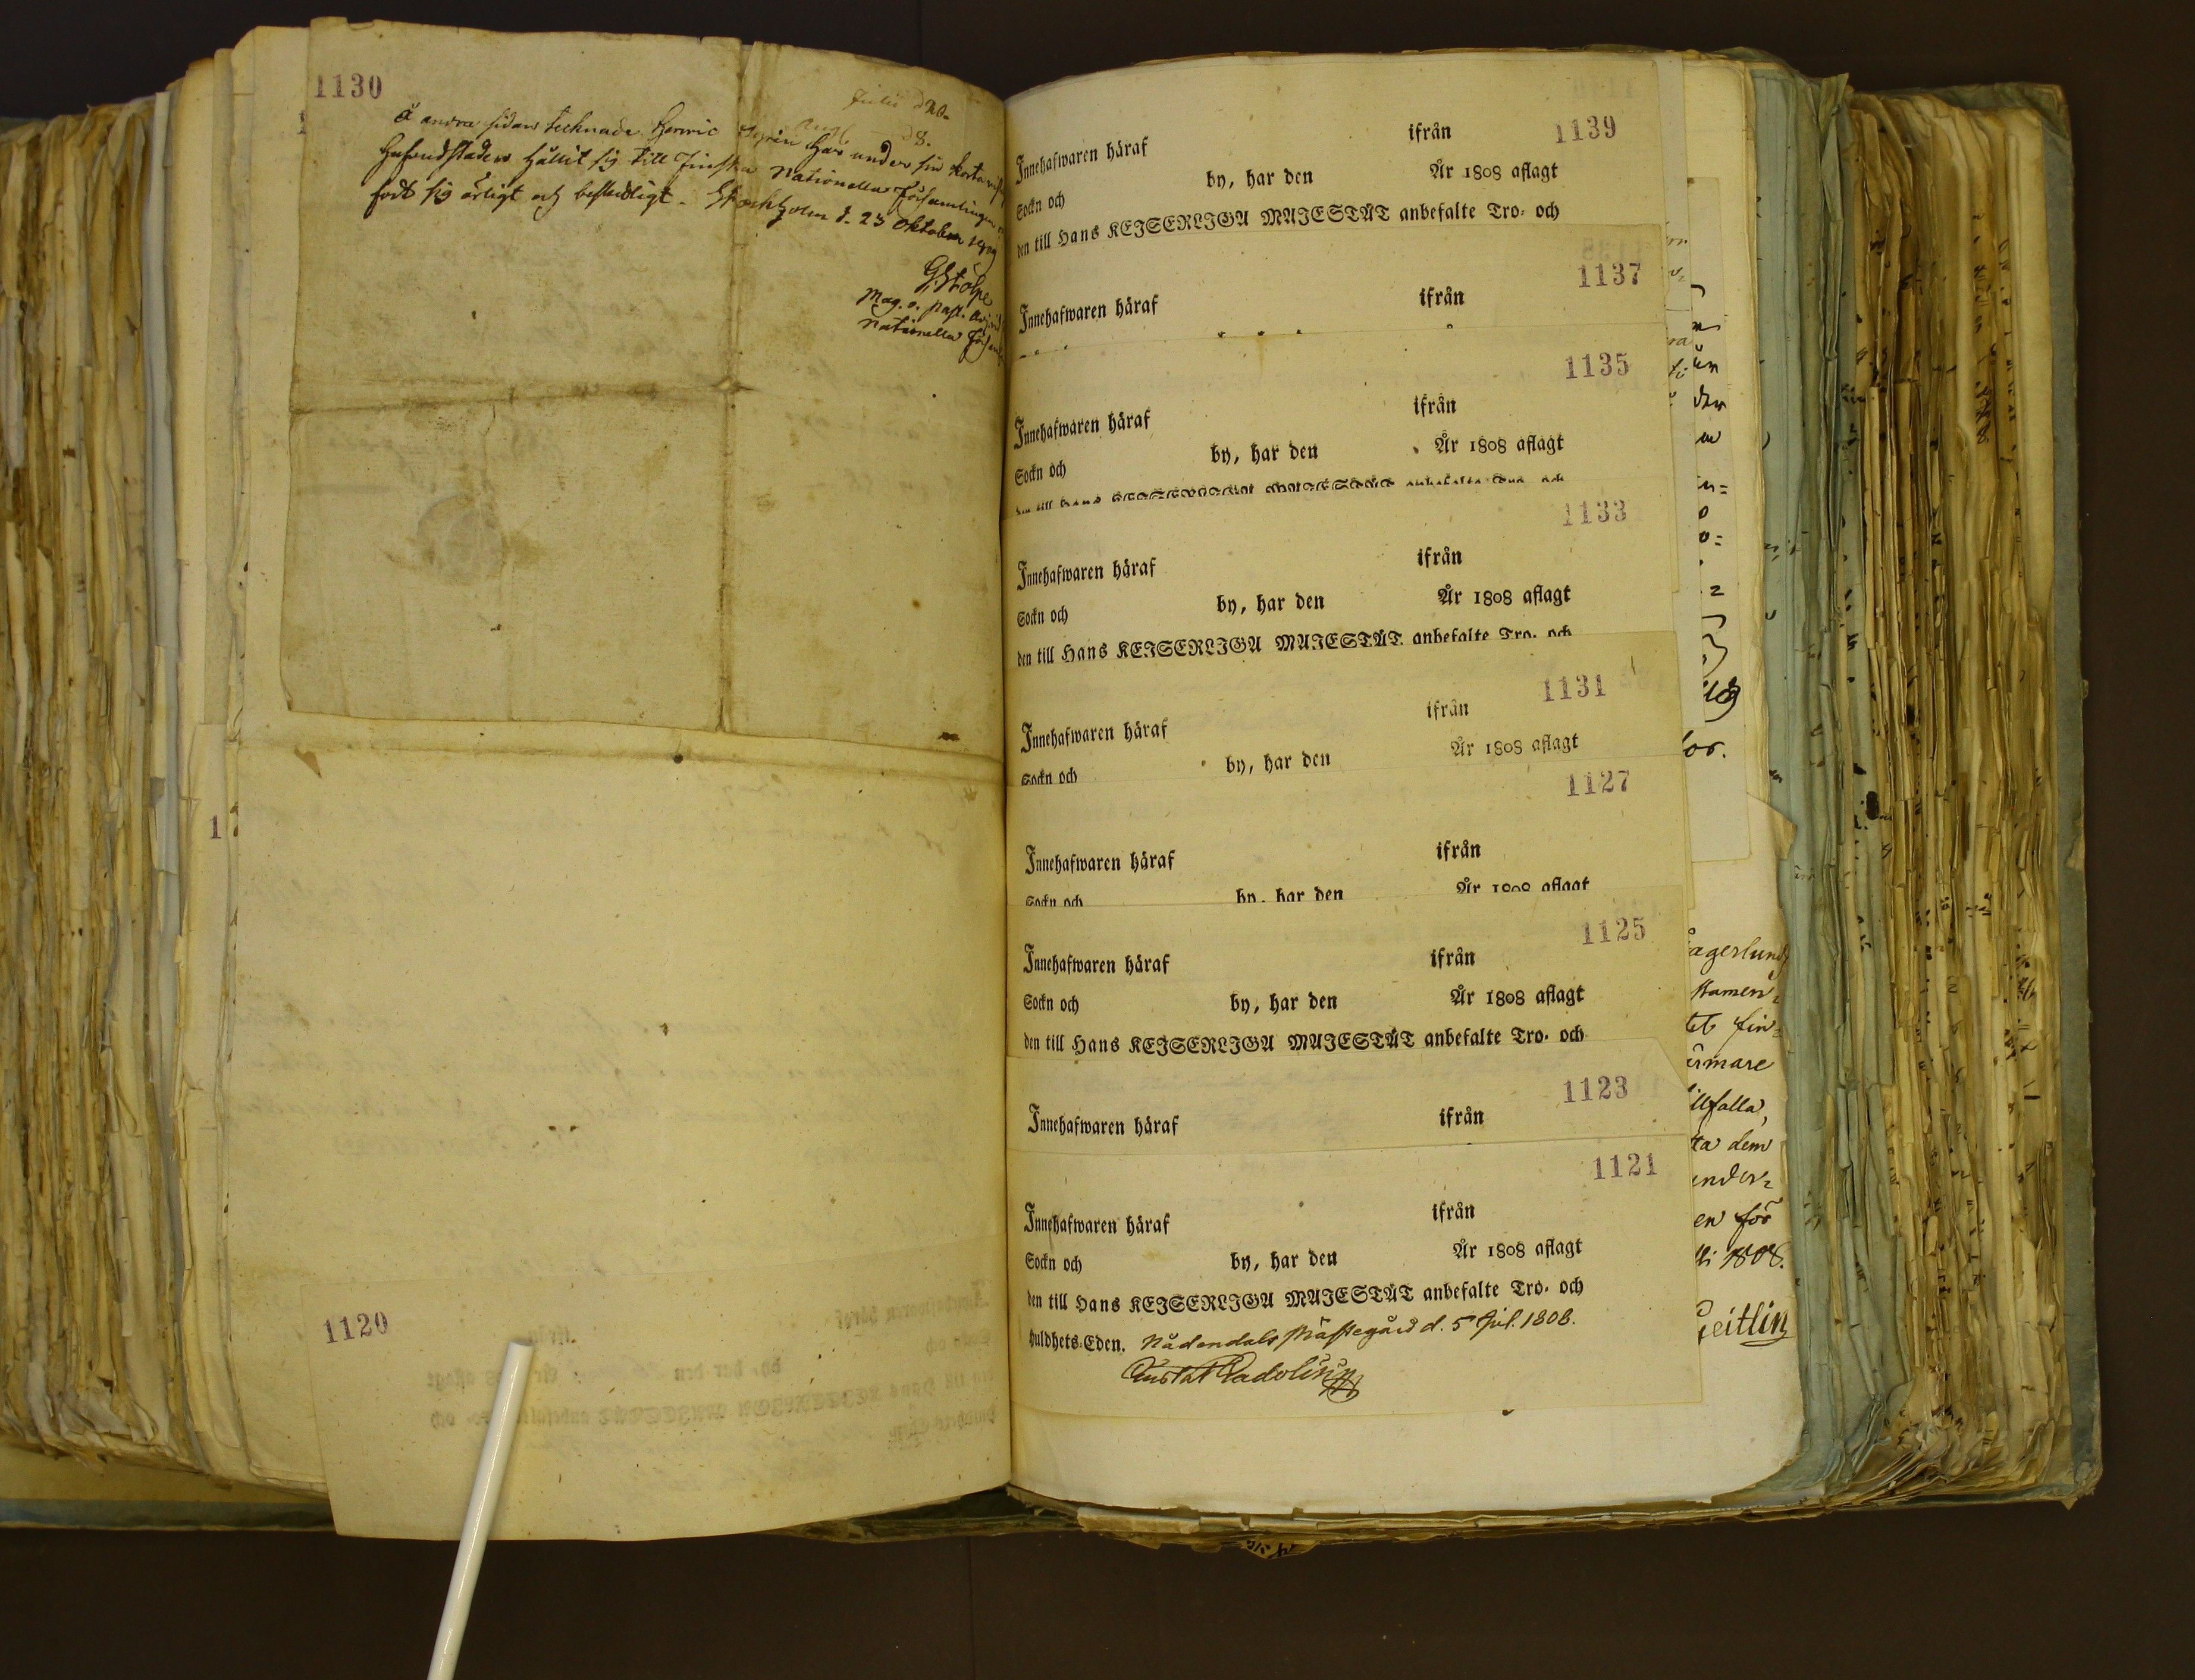 1130
Julii d 20.
Augt d 8.
å andra sidan tecknade Henric har under sin korta
hufvudstaden hållit sig till Finska Nationella Församlingen
födt sig ärligt och beskedligt. Stockholm d. 23 Oktober
G. Stolpe
Mag. o. Past.
Nationella
1120
1139
Innehafwaren häraf ifrån
Sockn och by, har den År 1808 aflagt
den till Hans KEJSERLIGA MAJESTÄT anbefalte Tro- och
1137
Innehafwaren häraf ifrån
1135
Innehafwaren häraf ifrån
Sockn och by, har den År 1808 aflagt
1133
Innehafwaren häraf ifrån
Sockn och by, har den År 1808 aflagt
den till Hans KEJSERLIGA MAJESTÄT anbefalte Tro- och
1131
Innehafwaren häraf ifrån
Sockn och by, har den År 1808 aflagt
1127
Innehafwaren häraf ifrån
Sockn och by, har den År 1808 aflagt
1125
Innehafwaren häraf ifrån
Sockn och by, har den År 1808 aflagt
den till Hans KEJSERLIGA MAJESTÄT anbefalte Tro- och
1123
Innehafwaren häraf ifrån
1121
Innehafwaren häraf ifrån
Sockn och by, har den År 1808 aflagt
den till Hans KEJSERLIGA MAJESTÄT anbefalte Tro- och
huldhets-Eden. Nådendals Prästegård d. 5 Jul. 1808.
Gustaf Gadolin
agerlund
stamen-
tet fin-
ärmare
illfalla,
ta dem
under-
en för
li 1808.
Geitlin